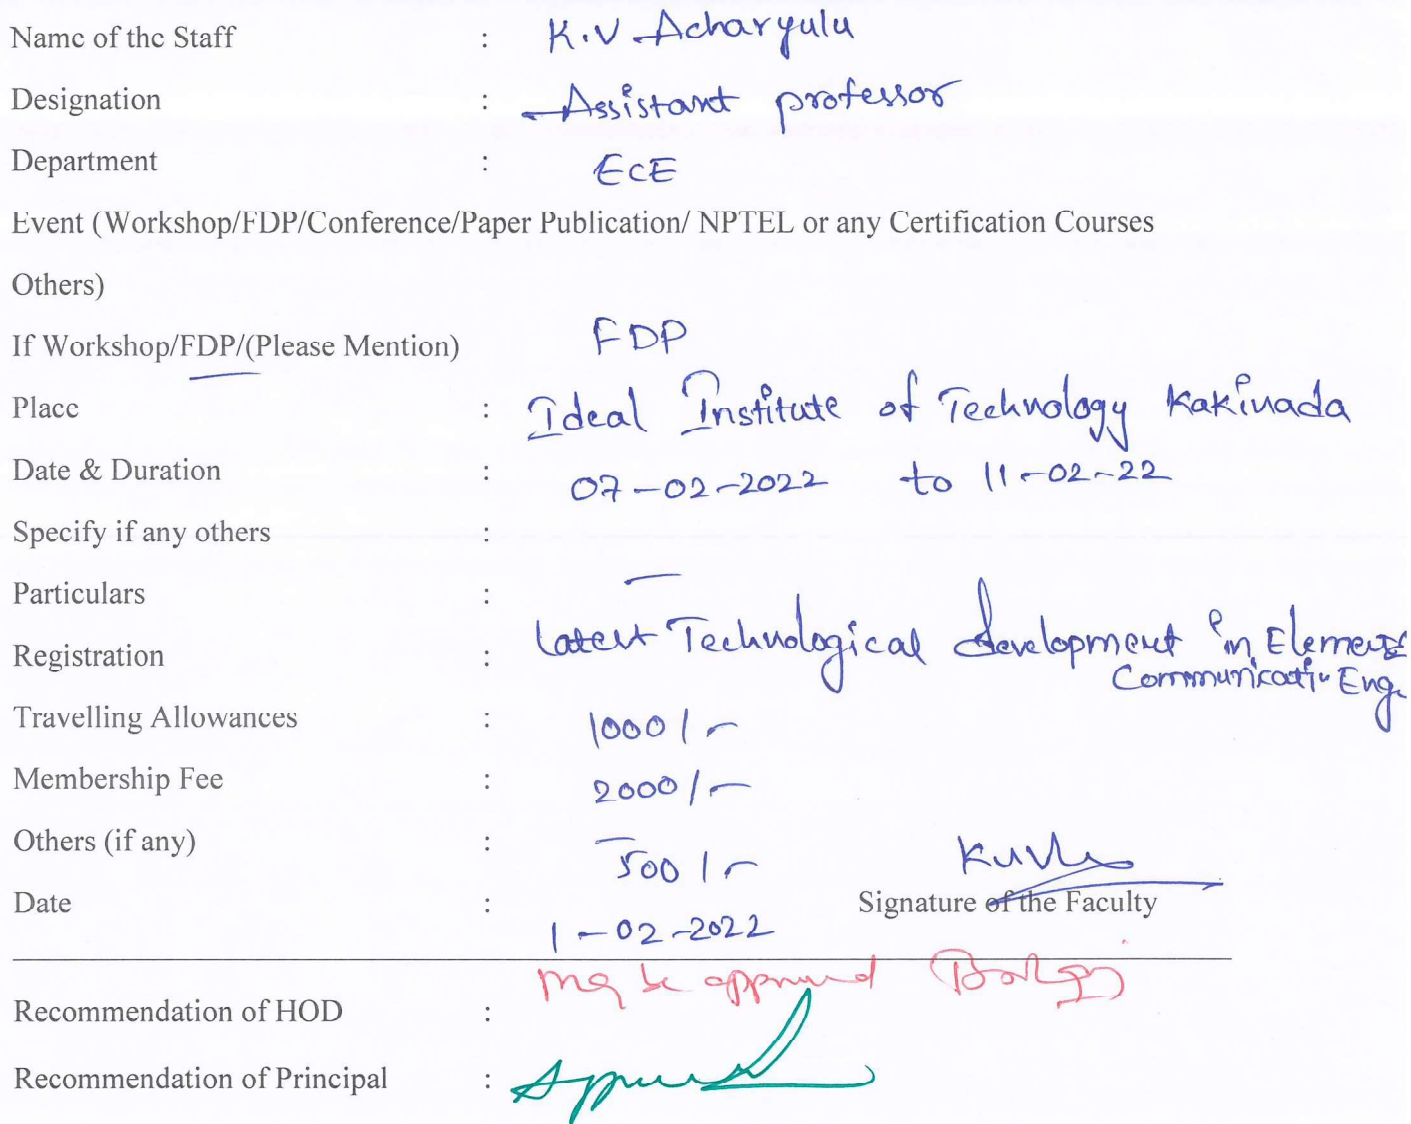 Name of the Staff : K.V Acharyulu
Designation : Assistant professor
Department : ECE
Event (Workshop/FDP/Conference/Paper Publication/ NPTEL or any Certification Courses
Others)
If Workshop/FDP/(Please Mention) FDP
Place : Ideal Institute of Technology Kakinada
Date & Duration : 07-02-2022 to 11-02-22
Specify if any others :
Particulars : —
Registration : Latest Technological development in
Communicatin Eng.
Travelling Allowances : 1000/-
Membership Fee : 2000/-
Others (if any) : 500/-
Date : 1-02-2022
Signature of the Faculty
may be approved
Recommendation of HOD :
Recommendation of Principal : Approved